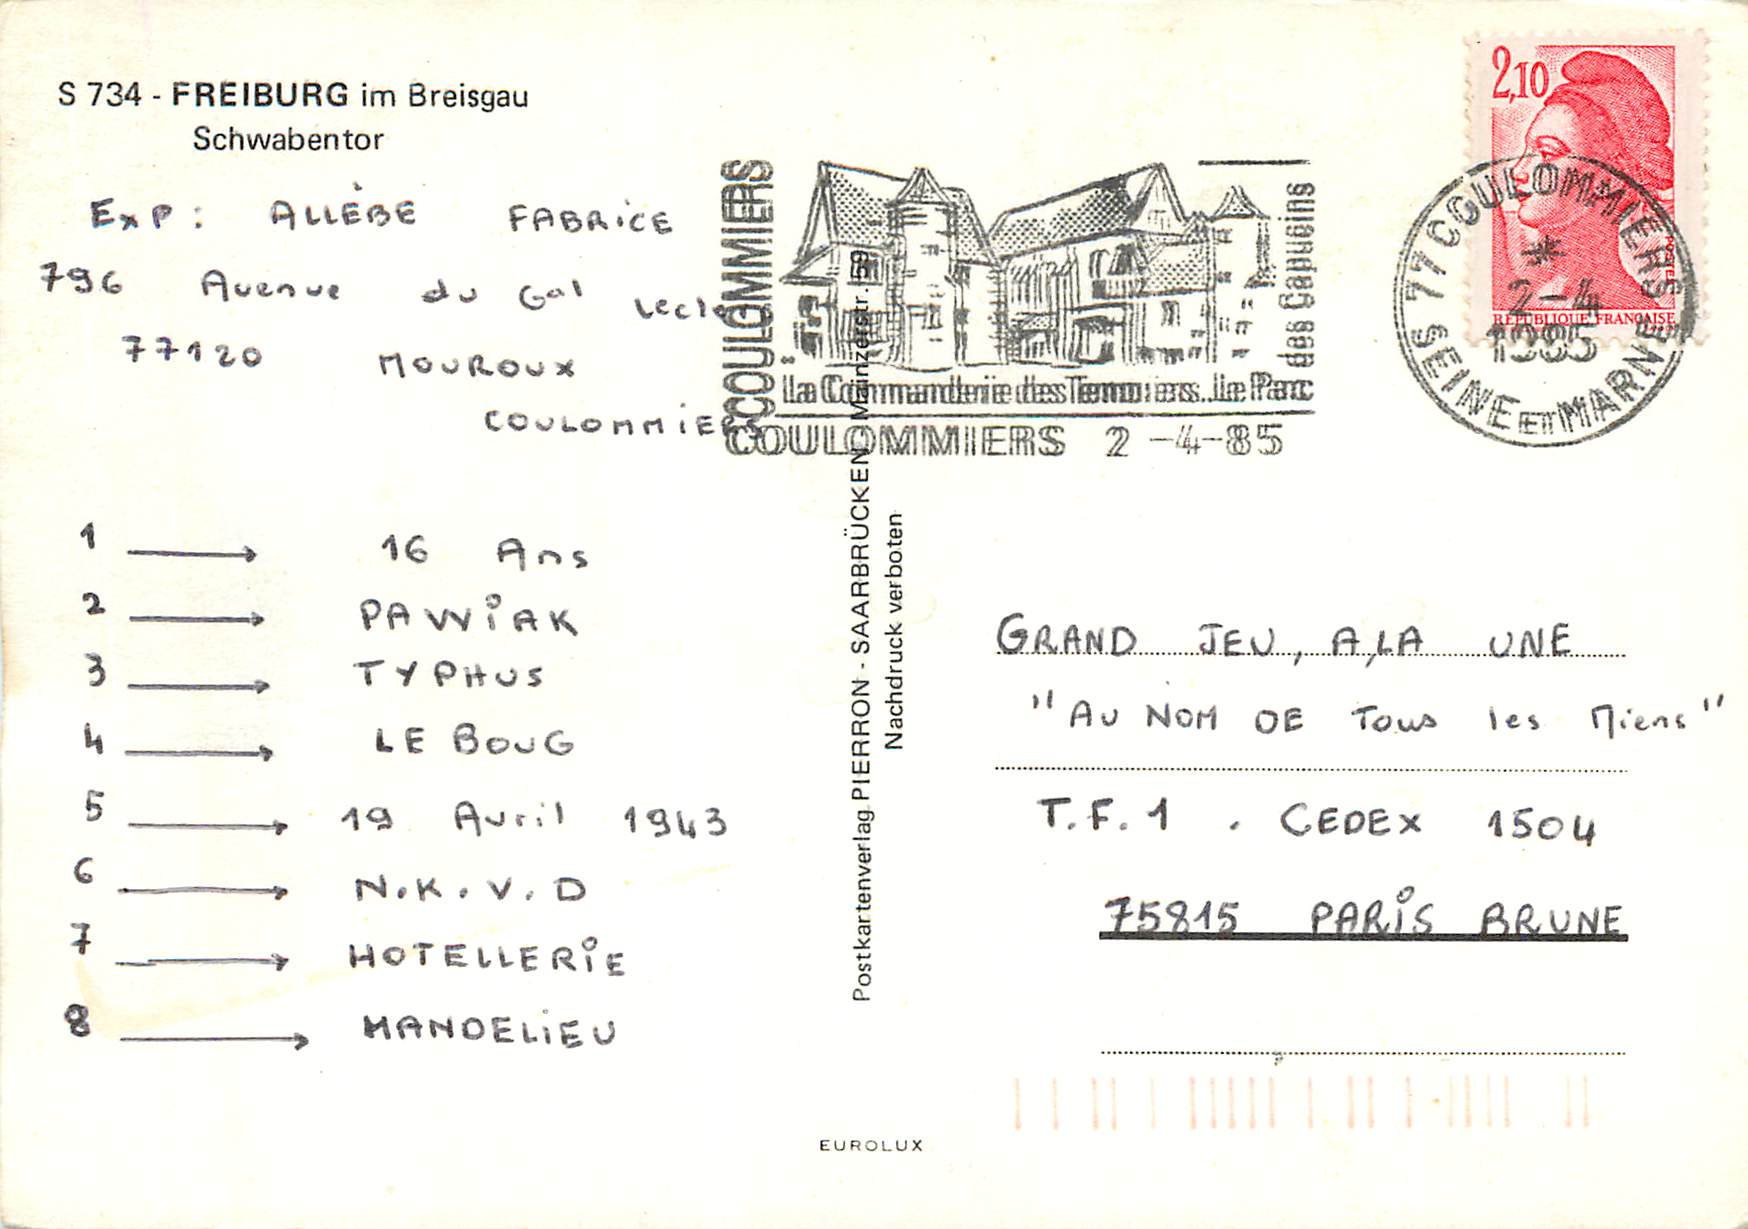 S 734 - FREIBURG im Breisgau
Schwabentor
EXP : ALLÈBE FABRICE
796 Avenue du Gal
77120 MOUROUX
COULOMMIERS
1 → 16 Ans
2 → PAWIAK
3 → TYPHUS
4 → LE BOUG
5 → 19 Avril 1943
6 → N.K.V.D
7 → HOTELLERIE
8 → MANDELIEU
Postkartenverlag PIERRON - SAARBRÜCKEN Mainzerstr. 59
Nachdruck verboten
EUROLUX
COULOMMIERS
La Commanderie des Templiers. Le Parc
des Capucins
COULOMMIERS 2 -4-85
2,10
RÉPUBLIQUE FRANÇAISE
POSTES
77 COULOMMIERS
*
2-4
1985
SEINE ET MARNE
GRAND JEU, A,LA UNE
"AU NOM DE Tous les Miens"
T.F.1 . CEDEX 1504
75815 PARIS BRUNE